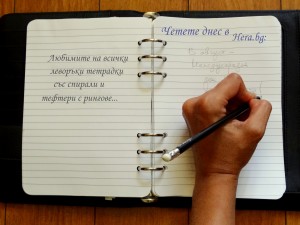 Любимите на всички
леворъки тетрадки
със спирали и
тефтери с рингове...
Четете днес в
Hera.bg: